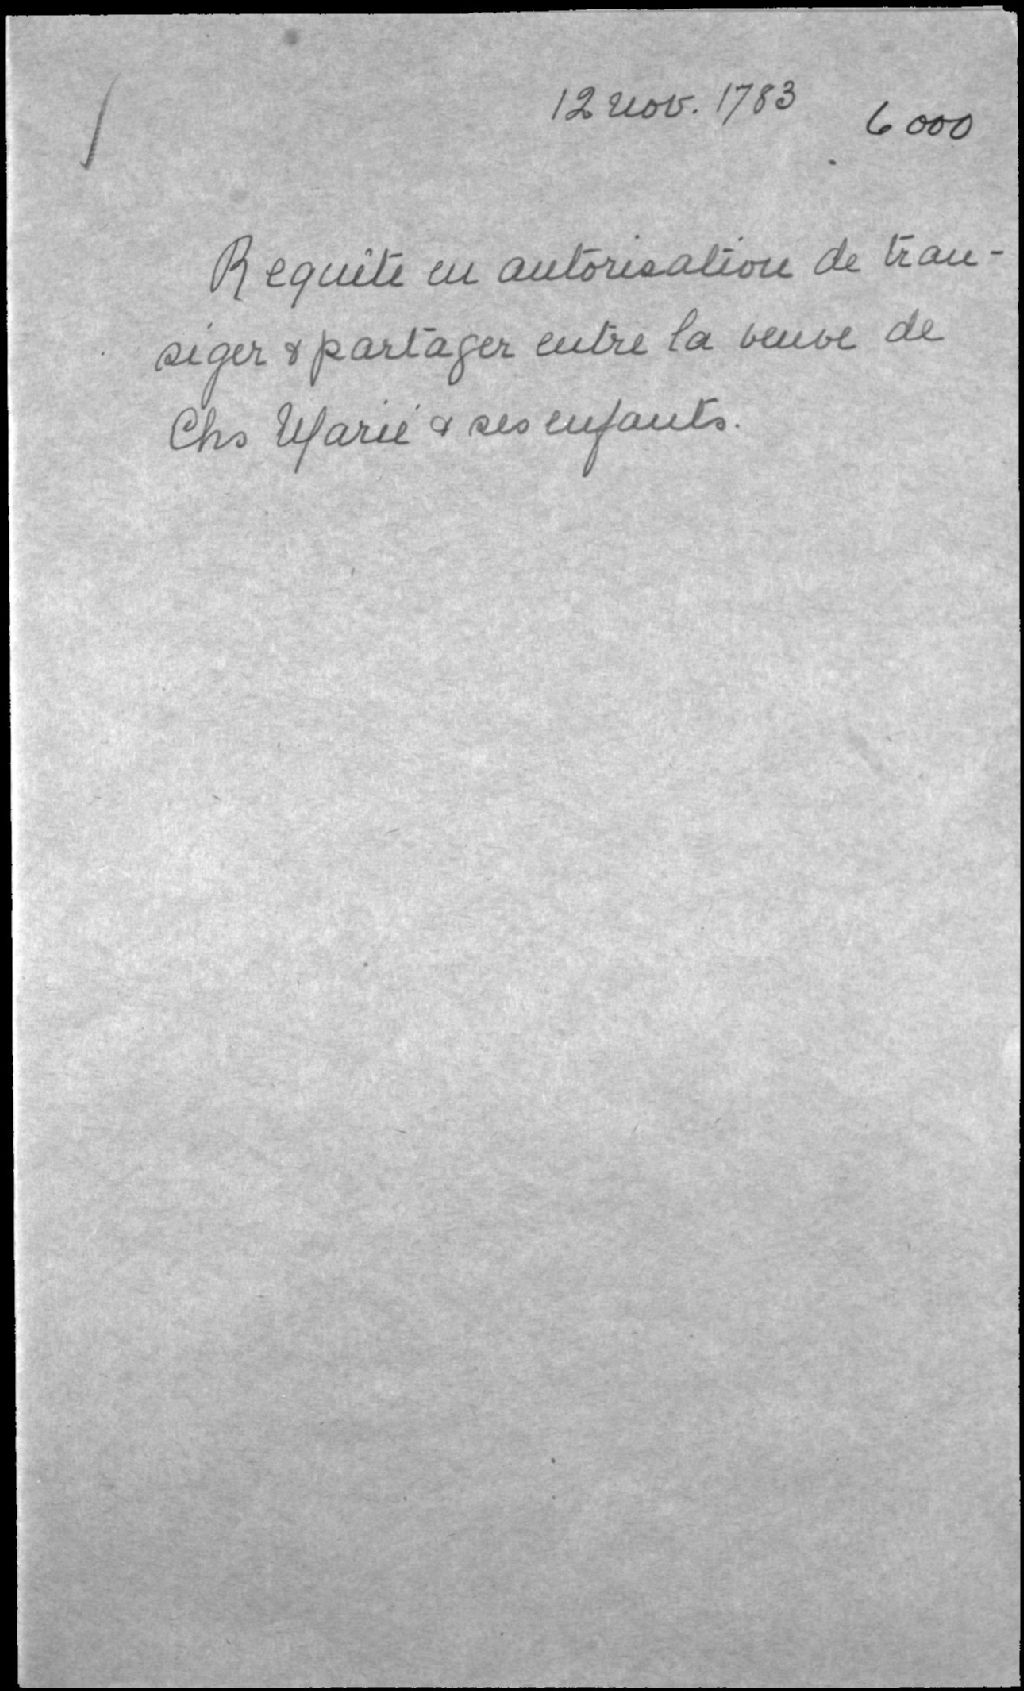 12 nov. 1783 6000
Requête en autorisation de tran-
siger & partager entre la veuve de
Chs Marié & ses enfants.